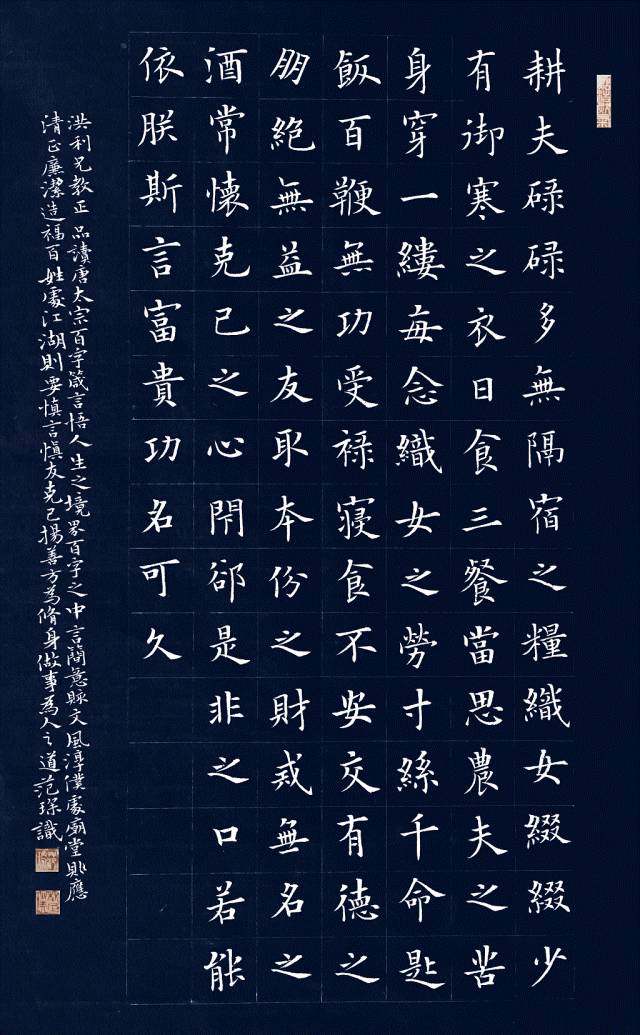 耕夫碌碌多無隔宿之糧織女綴綴少
有御寒之衣日食三餐當思農夫之苦
身穿一縷每念織女之勞寸絲千命匙
飯百鞭無功受祿寢食不安交有德之
朋絕無益之友取本份之財戒無名之
酒常懷克己之心閉卻是非之口若能
依朕斯言富貴功名可久
洪利兄教正 品讀唐太宗百字箴言悟人生之境界百字之中言簡意賅文風淳僕處廟堂則應
清正廉潔造福百姓處江湖則要慎言慎友克己揚善方為脩身做事為人之道范琛識